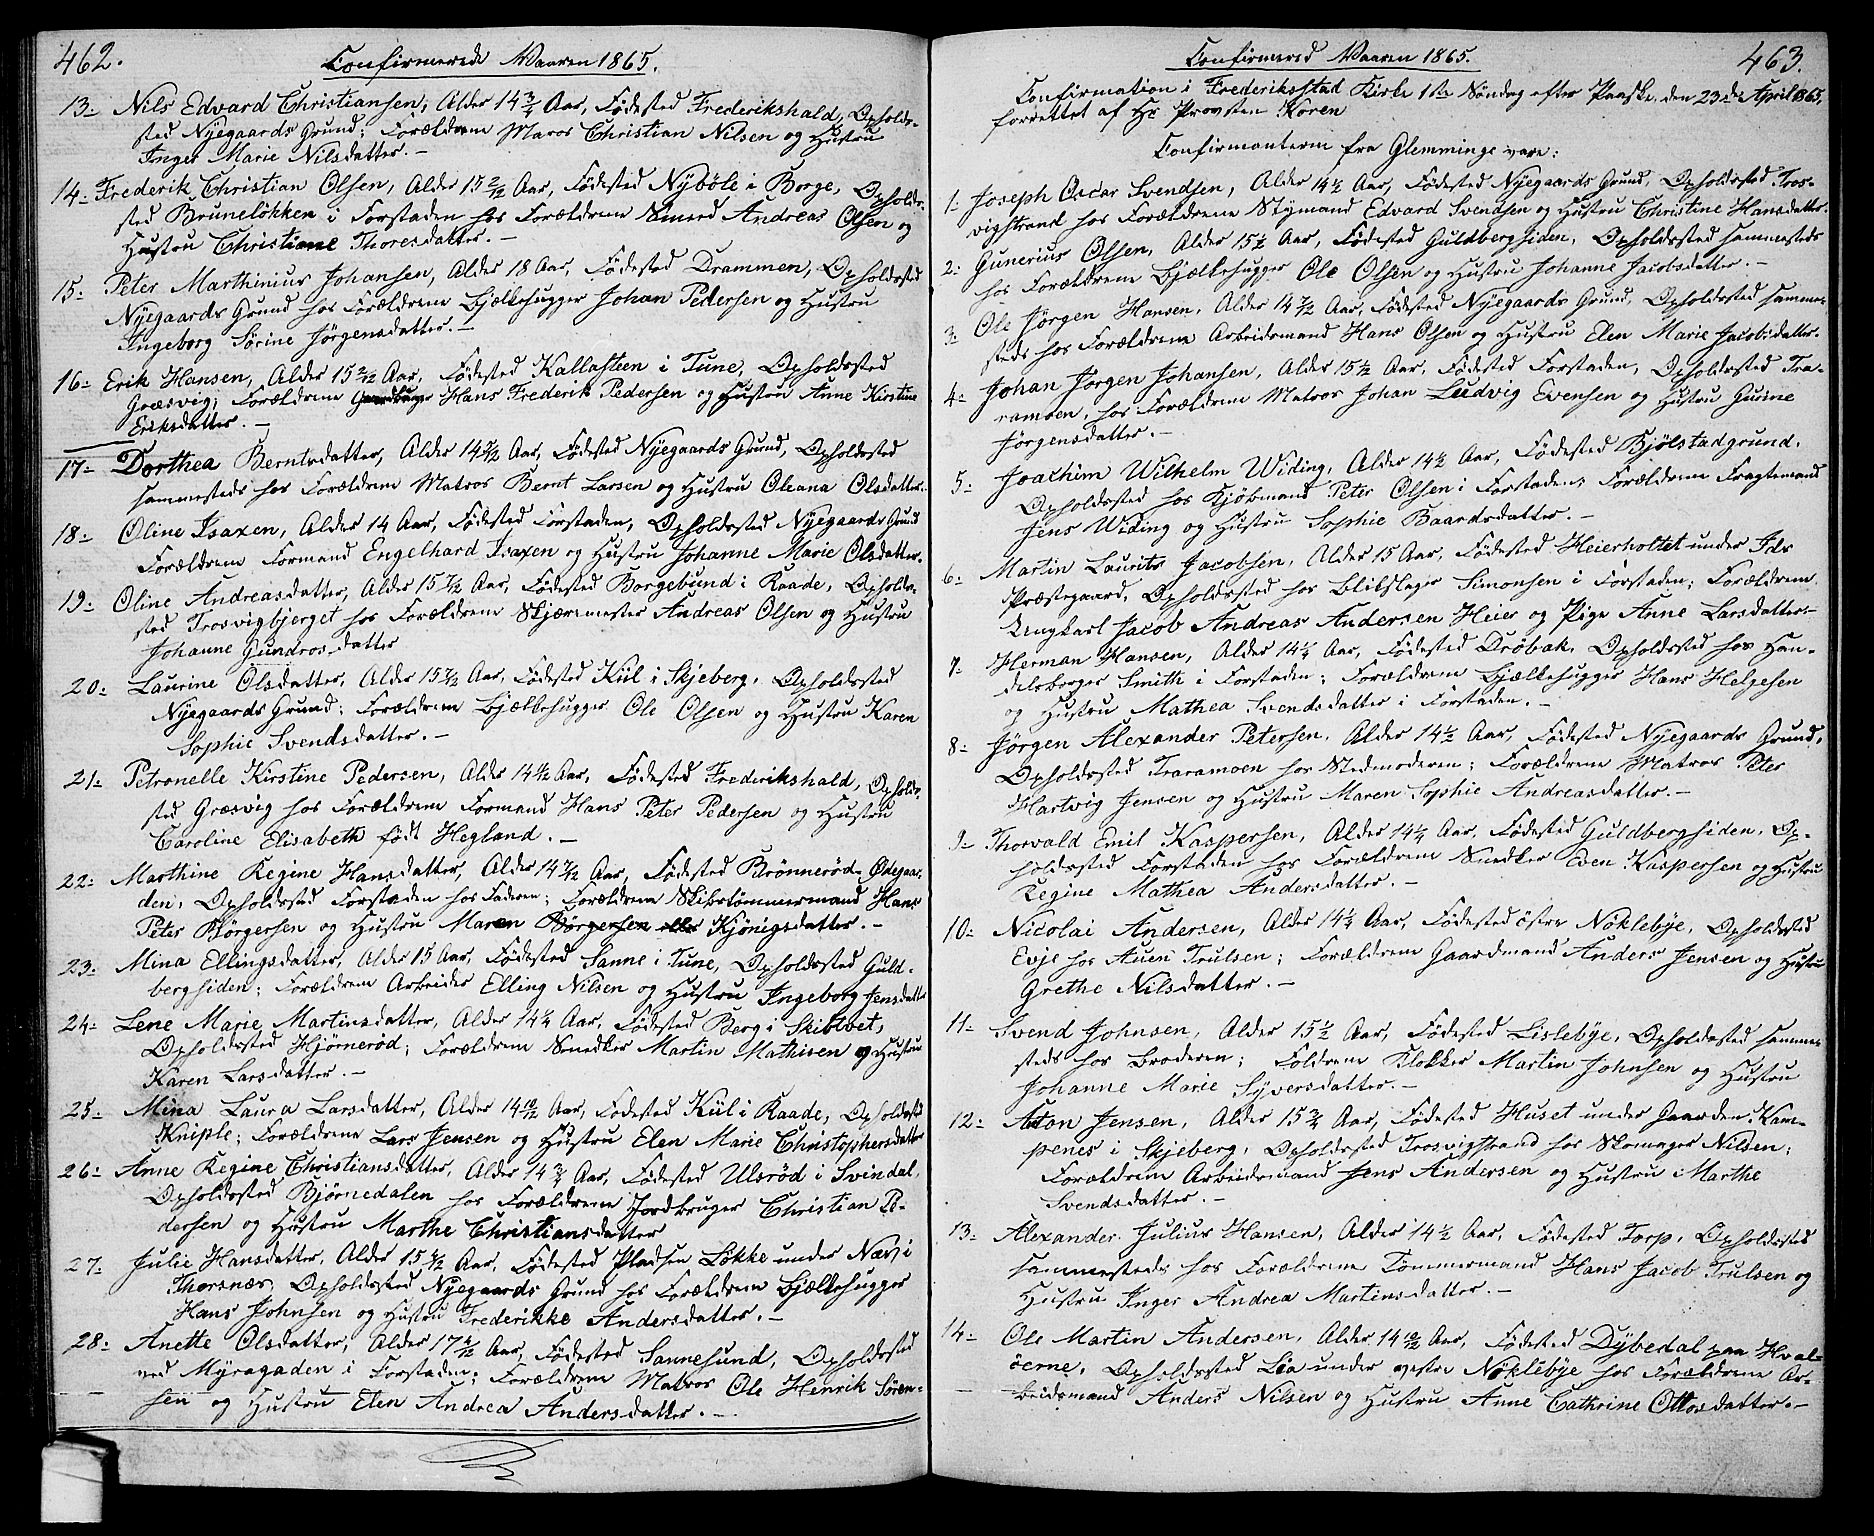 462.
Confirmerede Vaaren 1865.
13. Nils Edvard Christiansen, Alder 14 3/4 Aar, Födested Frederikshald, Opholds-
sted Nyegaards Grund; Forældrene Matros Christian Nilsen og Hustru
Inger Marie Nilsdatter. –
14. Frederik Christian Olsen, Alder 15 2/12 Aar, Födested Nyböle i Borge, Opholds-
sted Bruneløkken i Forstaden hos Forældrene Smed Andreas Olsen og
Hustru Christiane Thoresdatter. –
15. Peter Marthinius Johansen, Alder 18 Aar, Födested Drammen, Opholdssted
Nyegaards Grund hos Forældrene Bjælkehugger Johan Pedersen og Hustru
Ingeborg Sörine Jörgensdatter. –
16. Erik Hansen, Alder 15 2/12 Aar, Födested Kallasteen i Tune, Opholdssted
Græsvig; Forældrene Hans Frederik Pedersen og Hustru Anne Kirstine
Eriksdatter. –
17. Dorthea Berntsdatter, Alder 14 Aar, Födested Nyegaards Grund, Opholdssted
sammesteds hos Forældrene Matros Bernt Larsen og Hustru Oleana Olsdatter.
18. Oline Isaxen, Alder 14 Aar, Födested Forstaden, Opholdssted Nyegaards Grund
Forældrene Formand Engelhard Isaxen og Hustru Johanne Marie Olsdatter.
19. Oline Andreasdatter, Alder 15 Aar, Födested Borgebund i Raade, Opholds-
sted Trosvigbjerget hos Forældrene Skjæremester Andreas Olsen og Hustru
Johanne Gundrosdatter
20. Laurine Olsdatter, Alder 15 Aar, Födested Kiil i Skjeberg, Opholdssted
Nyegaards Grund; Forældrene Bjælkehugger Ole Olsen og Hustru Karen
Sophie Svendsdatter. –
21. Petronelle Kirstine Pedersen, Alder 14 Aar, Födested Frederikshald, Opholds-
sted Græsvig hos Forældrene Formand Hans Peter Pedersen og Hustru
Caroline Elisabeth födt Hegland. –
22. Marthine Regine Hansdatter, Alder 14 Aar, Födested Brönneröd-Ödegaar-
den, Opholdssted Forstaden hos Faderen; Forældrene Skibstömmermand Hans
Peter Börgersen og Hustru Maren Börgersen Kjönigsdatter. –
23. Mina Ellingsdatter, Alder 15 Aar, Födested Sanne i Tune, Opholdssted Guld-
bergsiden; Forældrene Arbeider Elling Nilsen og Hustru Ingeborg Jensdatter
24. Lene Marie Martinsdatter, Alder 14 1/4 Aar, Födested Berg i Skibtvet,
Opholdssted Hjørneröd; Forældrene Snedker Martin Mathisen og Hustru
Karen Larsdatter. –
25. Mina Laura Larsdatter, Alder 14 10/12 Aar, Födested Kiil i Raade, Opholdssted
Kniple; Forældrene Lars Jensen og Hustru Elen Marie Christophersdatter
26. Anne Regine Christiansdatter, Alder 14 3/4 Aar, Födested Ulsröd i Svindal,
Opholdssted Bjørnedalen hos Forældrene Jordbruger Christian Pe-
dersen og Hustru Marthe Christiansdatter
27. Julie Hansdatter, Alder 15 Aar, Födested Pladsen Løkke under Næs i
Thorsnæs, Opholdssted Nyegaards Grund hos Forældrene Bjælkehugger
Hans Johnsen og Hustru Frederikke Andersdatter. –
28. Anette Olsdatter, Alder 17 Aar, Födested Sannesund, Opholdssted
ved Myragaden i Forstaden; Forældrene Matros Ole Henrik Sören-
sen og Hustru Elen Andrea Andersdatter. –
463.
Confirmered Vaaren 1865.
Confirmation i Frederiksstad Kirke 1ste Söndag efter Paaske, den 23de April 1865,
forrettet af Hr Provsten Koren
Confirmanterne fra Glemminge vare:
1. Joseph Oscar Svendsen, Alder 14 1/2 Aar, Födested Nyegaards Grund, Opholdssted Tros-
vigstrand hos Forældrene Stymand Edvard Svendsen og Hustru Christine Hansdatter.
2. Gunerius Olsen, Alder 15 1/2 Aar, Födested Guldbergsiden, Opholdssted sammesteds
hos Forældrene Bjælkehugger Ole Olsen og Hustru Johanne Jacobsdatter. –
3. Ole Jörgen Hansen, Alder 14 Aar, Födested Nyegaards Grund, Opholdssted samme-
steds hos Forældrene Arbeidsmand Hans Olsen og Hustru Elen Marie Jacobsdatter.
4. Johan Jörgen Johansen, Alder 15 1/2 Aar, Födested Forstaden, Opholdssted Tra-
ramoen, hos Forældrene Matros Johan Ludvig Evensen og Hustru Gurine
Jörgensdatter. –
5. Joachim Wilhelm Widing, Alder 14 1/2 Aar, Födested Bjölstadgrund,
Opholdssted hos Kjöbmand Peter Olsen i Forstaden; Forældrene Fragtemand
Jens Widing og Hustru Sophie Baardsdatter. –
6. Martin Laurits Jacobsen, Alder 15 Aar, Födested Heierholtet under Ids
Præstegaard, Opholdssted hos Blikslager Simonsen i Forstaden; Forældrene
Ungkarl Jacob Andreas Andersen Heier og Pige Anne Larsdatter–
7. Herman Hansen, Alder 14 1/4 Aar, Födested Dröbak, Opholdssted hos Han-
delsborger Smith i Forstaden; Forældrene Bjælkehugger Hans Helgesen
og Hustru Mathea Svendsdatter i Forstaden. –
8. Jörgen Alexander Petersen, Alder 14 1/2 Aar, Födested Nyegaards Grund,
Opholdssted Traramoen hos Stedmoderen; Forældrene Matros Peter
Hartvig Jensen og Hustru Maren Sophie Andreasdatter. –
9. Thorvald Emil Kaspersen, Alder 14 1/4 Aar, Födested Guldbergsiden, Op-
holdssted Forstaden hos Forældrene Snedker Eden Kaspersen og Hustru
Regine Mathea Andersdatter. –
10. Nicolai Andersen, Alder 14 1/2 Aar, Födested östre Nöklebye, Opholdssted
Evje hos Auen Trulsen; Forældrene Gaardmand Anders Jensen og Hustru
Grethe Nilsdatter. –
11. Svend Johnsen, Alder 15 1/2 Aar, Födested Lislebye, Opholdssted samme-
steds hos Broderen; Foldrene Klokker Martin Johnsen og Hustru
Johanne Marie Syversdatter. –
12. Aton Jensen, Alder 15 3/4 Aar, Födested Huset under Gaarden Kam-
penes i Skjeberg, Opholdssted Trosvigstrand hos Skomager Nilsen;
Forældrene Arbeidsmand Jens Andersen og Hustru Marthe
Svendsdatter. –
13. Alexander Julius Hansen, Alder 14 1/2 Aar, Födested Torp, Opholdssted
sammesteds hos Forældrene Tömmermand Hans Jacob Trulsen og
Hustru Inger Andrea Martinsdatter. –
14. Ole Martin Andersen, Alder 14 10/12 Aar, Födested Dybedal paa Hval-
öerne, Opholdssted Lia under vestre Nöklebye hos Forældrene Ar-
beidsmand Anders Nilsen og Hustru Anne Cathrine Ottosdatter. –